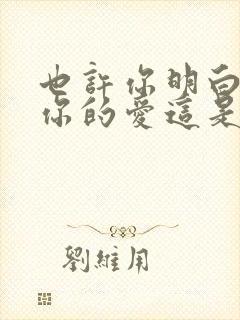 也許你明白
你的愛這是
劉維用